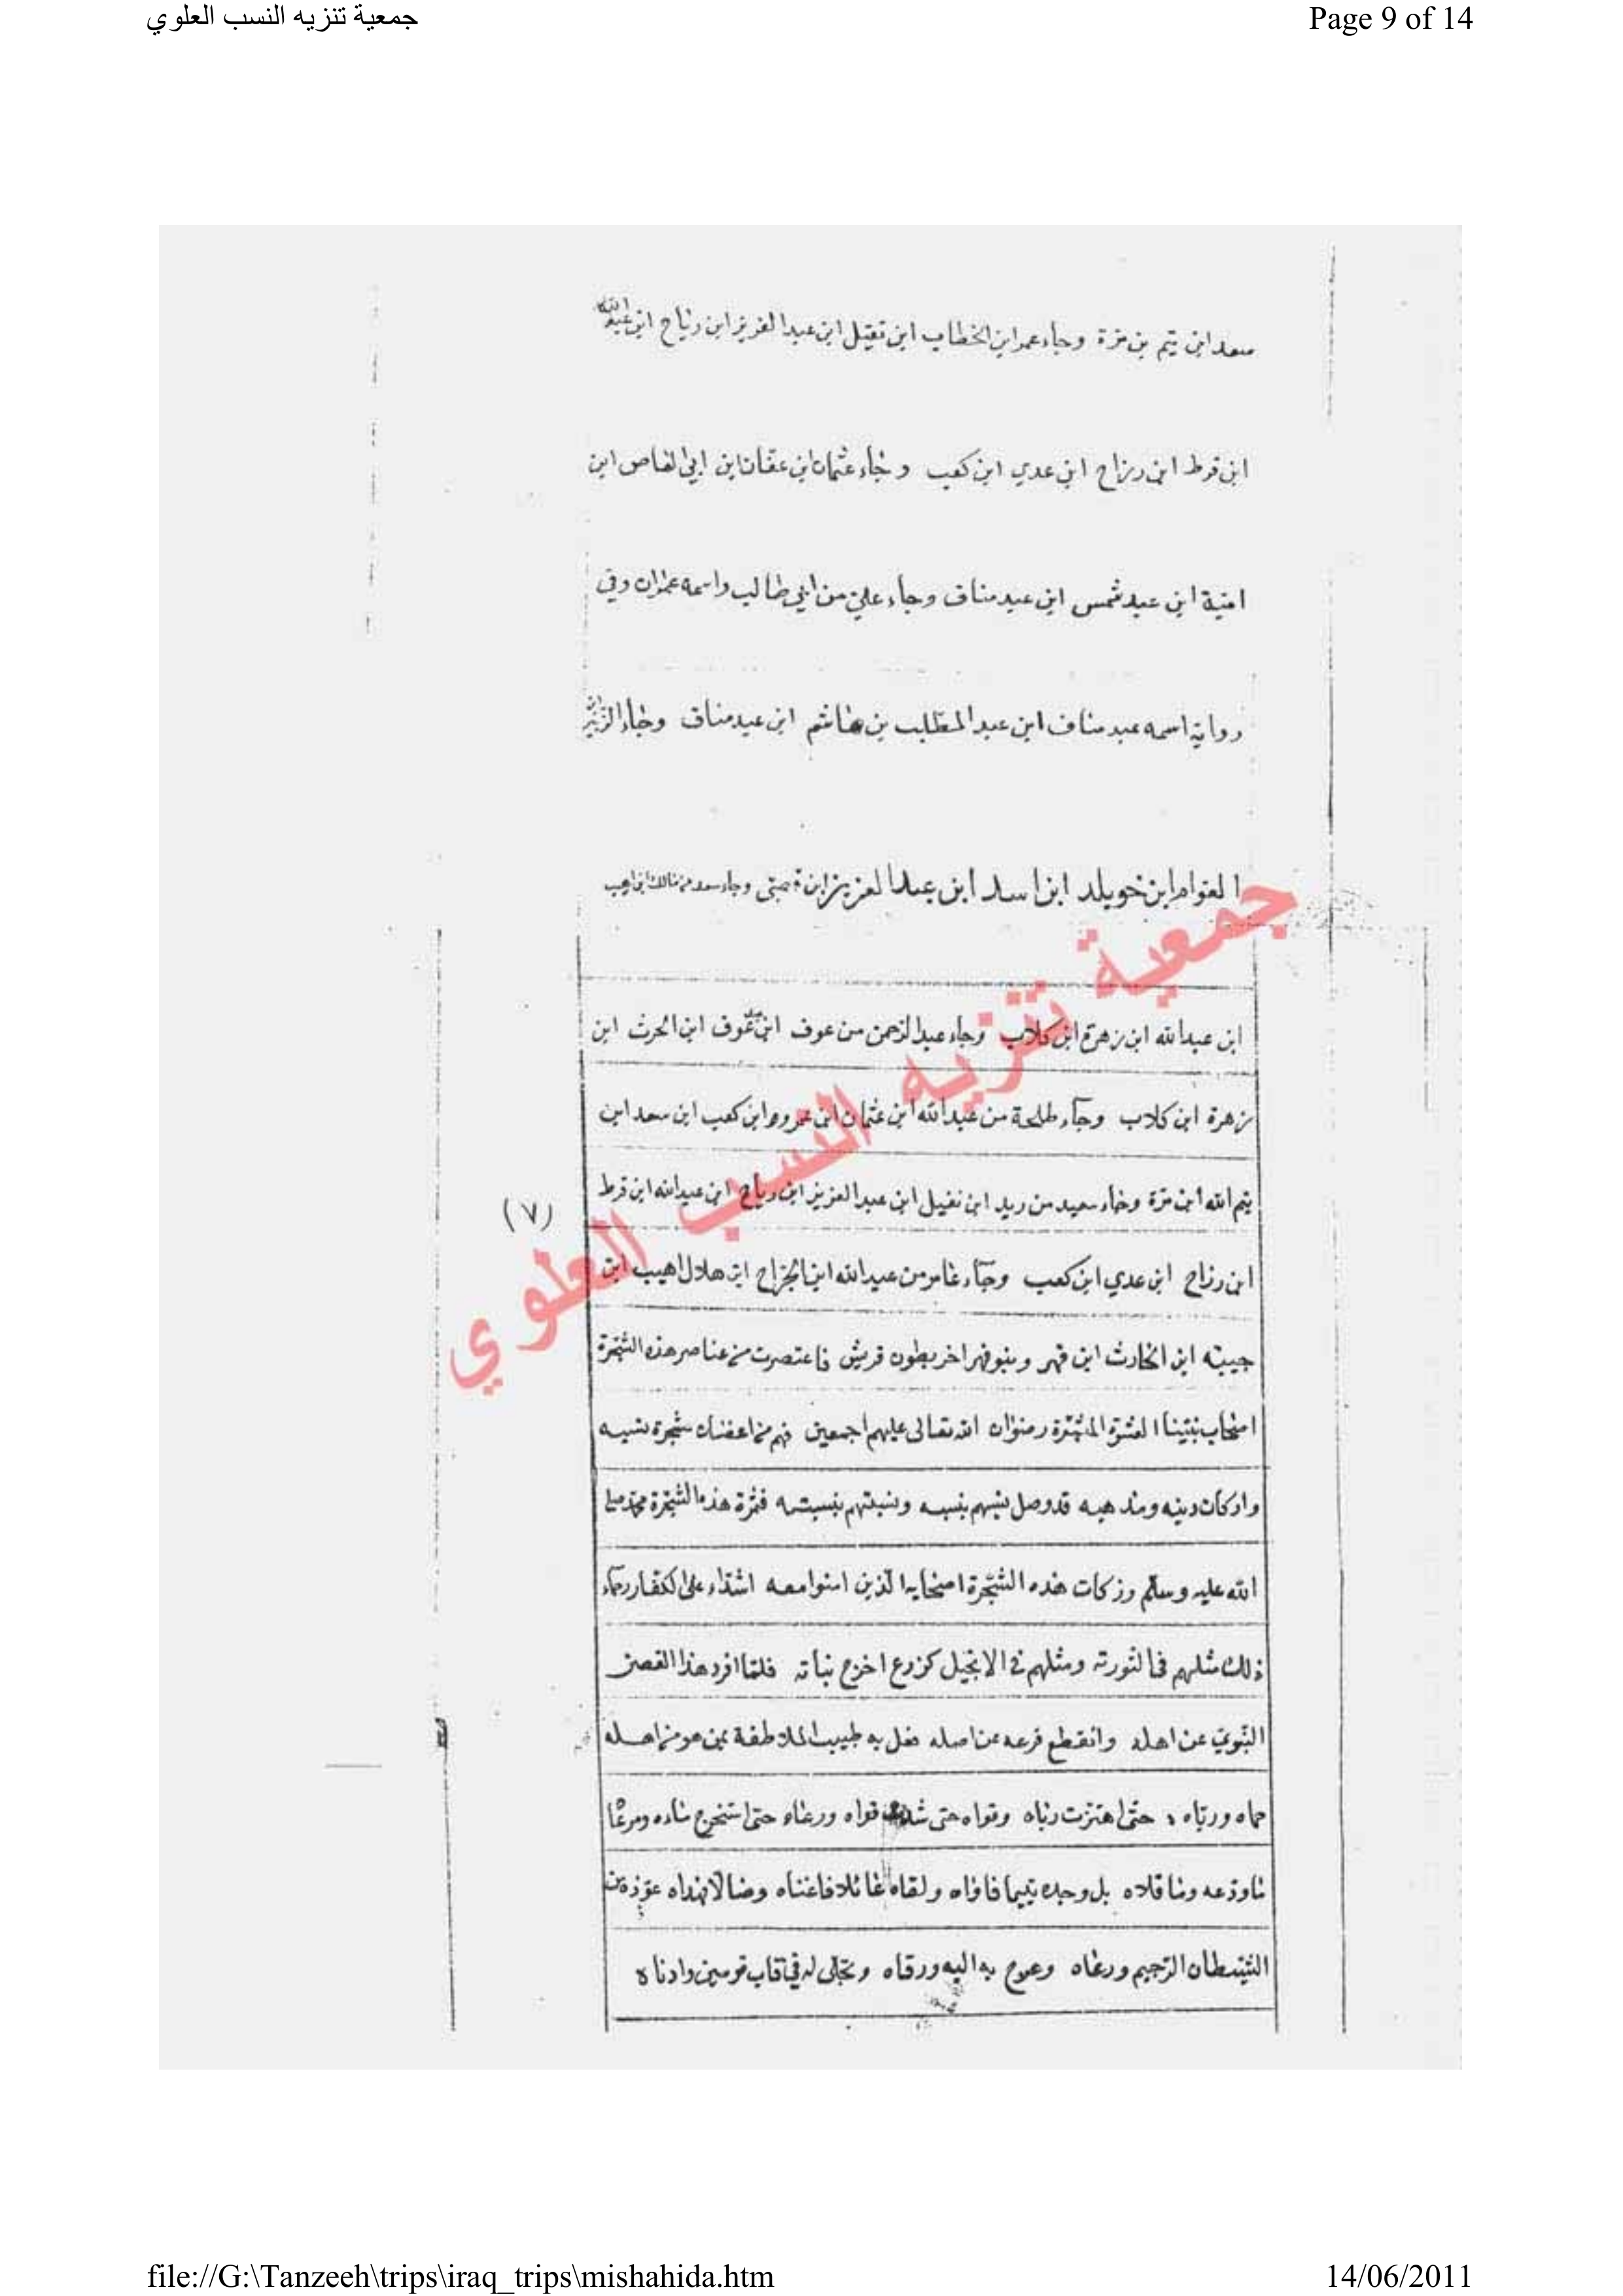 جمعية تنزيه النسب العلوي
Page 9 of 14
سعد ابن تيم بن مرة وجاء عمر ابن الخطاب ابن نفيل ابن عبد العزيز ابن رياح ابن عبد الله
ابن قرط ابن رزاح ابن عدي ابن كعب وجاء عثمان ابن عفان ابن ابي العاص ابن
امية ابن عبد شمس ابن عبد مناف وجاء علي من ابي طالب واسمه عمران وفي
رواية اسمه عبد مناف ابن عبد المطلب بن هاشم ابن عبد مناف وجاء الزبير ابن
العوام ابن خويلد ابن اسد ابن عبد العزيز ابن قصي وجاء سعد من مالك ابن اهيب
ابن عبدالله ابن زهرة ابن كلاب وجاء عبد الرحمن من عوف ابن عبد عوف ابن الحرث ابن
زهرة ابن كلاب وجاء طلحة من عبيد الله ابن عثمان ابن عمرو ابن كعب ابن سعد ابن
تيم الله ابن مرة وجاء سعيد من زيد ابن نفيل ابن عبد العزيز ابن رياح ابن عبد الله ابن قرط
(٧)
ابن رزاح ابن عدي ابن كعب وجاء عامر من عبد الله ابن الجراح ابن هلال اهيب ابن
ابن الحارث ابن فهر وبنو فهر اخر بطون قريش فاعتصرت من عناصر هذه الشجرة
اصحاب نبينا العشرة المبشرة رضوان الله تعالى عليهم اجمعين فهم من اغصان شجرة نسبه
واركان دينه ومذهبه قد وصل نسبهم بنسبه ونسبتهم بنسبته فثمرة هذه الشجرة محمد صلى
الله عليه وسلم وزكات هذه الشجرة اصحابه الذين امنوا معه اشداء على الكفار رحماء
ذلك مثلهم في التورته ومثلهم في الانجيل كزرع اخرج نباته فلما افرد هذا الغصن
النبوي عن اهله وانقطع فرعه عن اصله فعل به طبيب الملاطفة بمن هو من اهله
حماه ورباه حتى اهتزت رباه وقواه حتى قواه ورعاه حتى استخرج ماءه ومرعاها
ما ودعه وما قلاه بل وجده يتيما فاواه ولقاه عائلا فاغناه وضالا فهداه
الشيطان الرجيم ورعاه وعرج به اليه ورقاه وتجلى له في قاب قوسين وادناه
جمعية تنزيه النسب العلوي
file://G:\Tanzeeh\trips\iraq_trips\mishahida.htm
14/06/2011